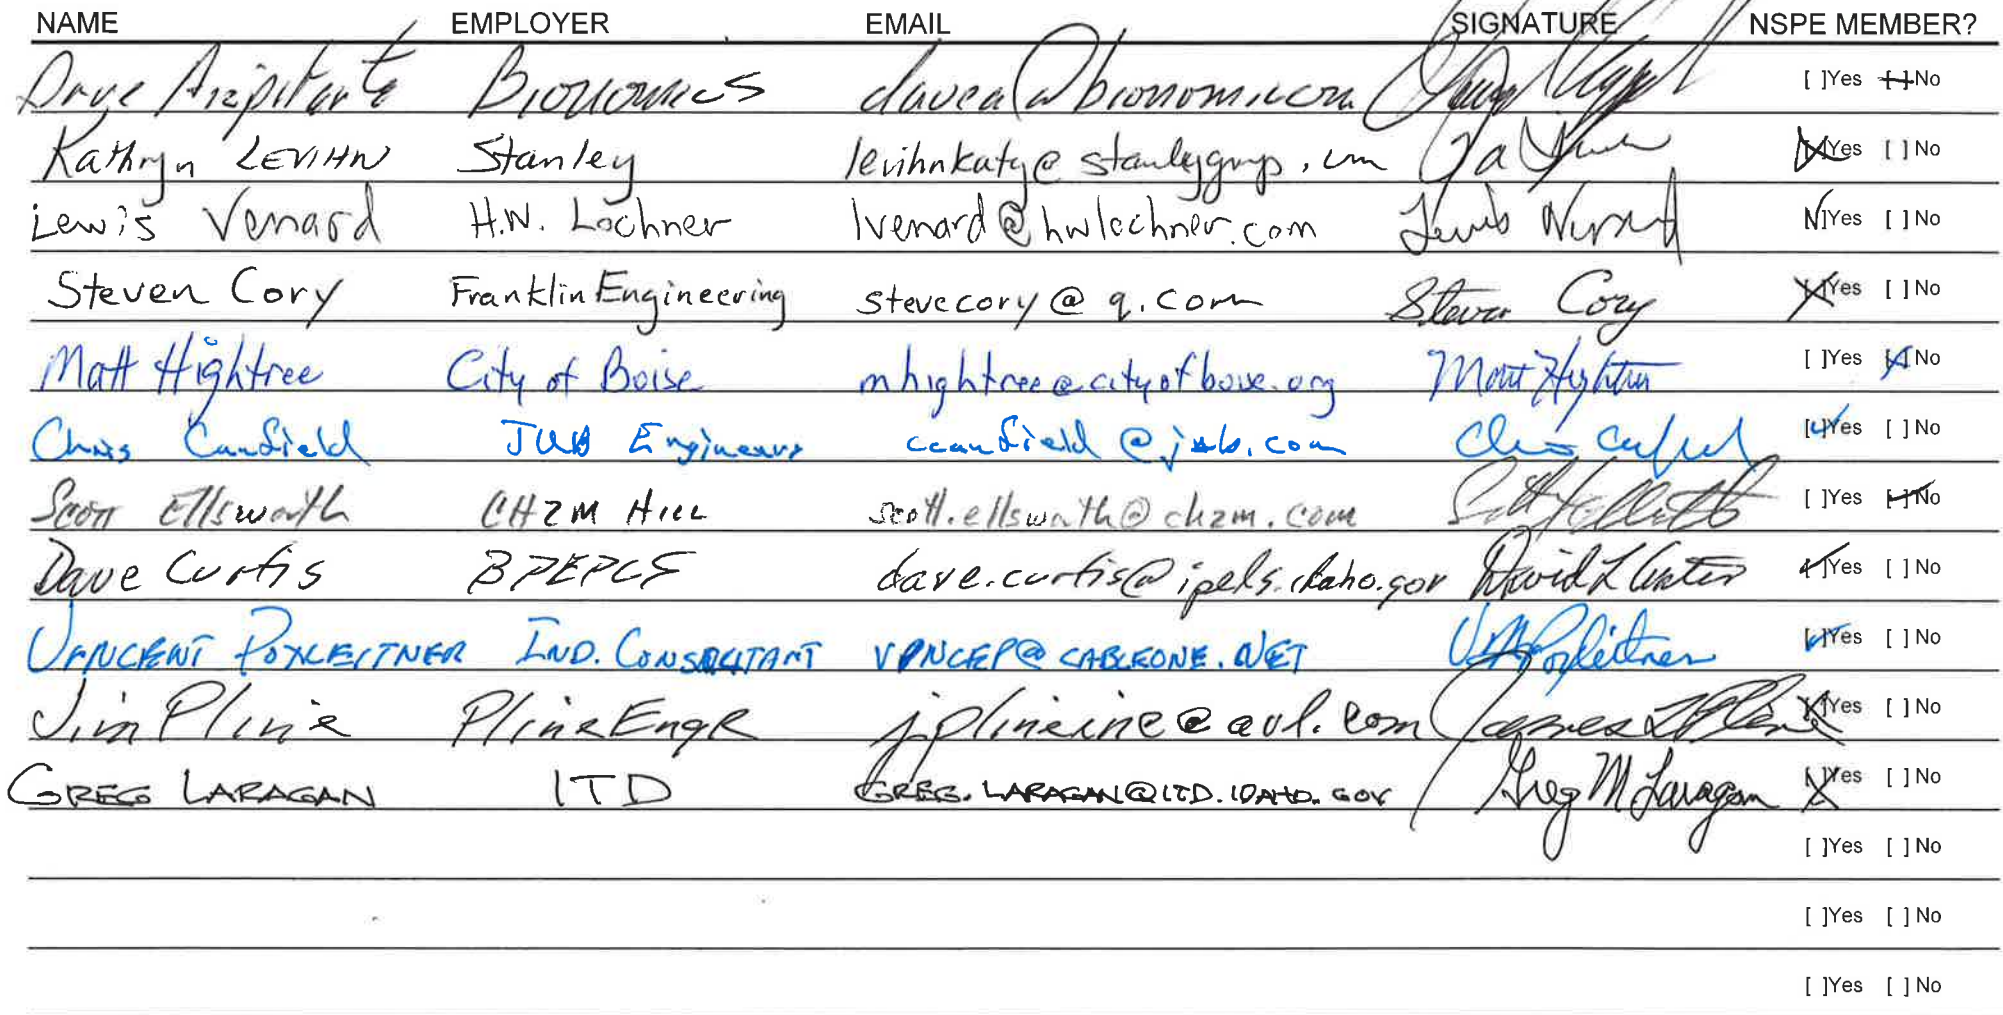 NAME EMPLOYER EMAIL SIGNATURE NSPE MEMBER?
Dave Azpitarte Bionomics [ ]Yes [ ]No
Kathryn LEVIHN Stanley levihnkaty@stanleygroup.com [X]Yes [ ]No
Lewis Venard H.W. Lochner lvenard@hwlochner.com Lewis Venard []Yes [ ]No
Steven Cory Franklin Engineering stevecory@q.com Steven Cory [X]Yes [ ]No
Matt Hightree City of Boise mhightree@cityofboise.org Matt Hightree [ ]Yes [X]No
Chris Canfield JUB Engineers ccanfield@jub.com [✓]Yes [ ]No
Scott Ellsworth CH2M HILL scott.ellsworth@ch2m.com [ ]Yes []No
Dave Curtis dave.curtis@ipels.idaho.gov David L Curtis [✓]Yes [ ]No
VINCENT POXLEITNER IND. CONSULTANT VPNCEP@CABLEONE.NET [✓]Yes [ ]No
Jim Pline Pline Engr jplineinc@aol.com James L Pline [X]Yes [ ]No
GREG LARAGAN ITD GREG.LARAGAN@ITD.IDAHO.GOV Greg M Laragan [X]Yes [ ]No
[ ]Yes [ ]No
[ ]Yes [ ]No
[ ]Yes [ ]No